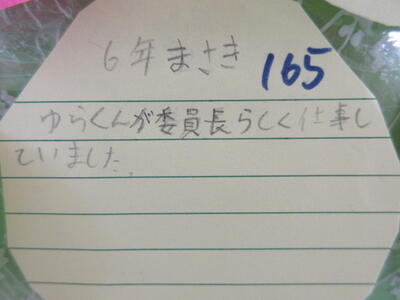 6年まさき 165
ゆらくんが委員長らしく仕事し
ていました。